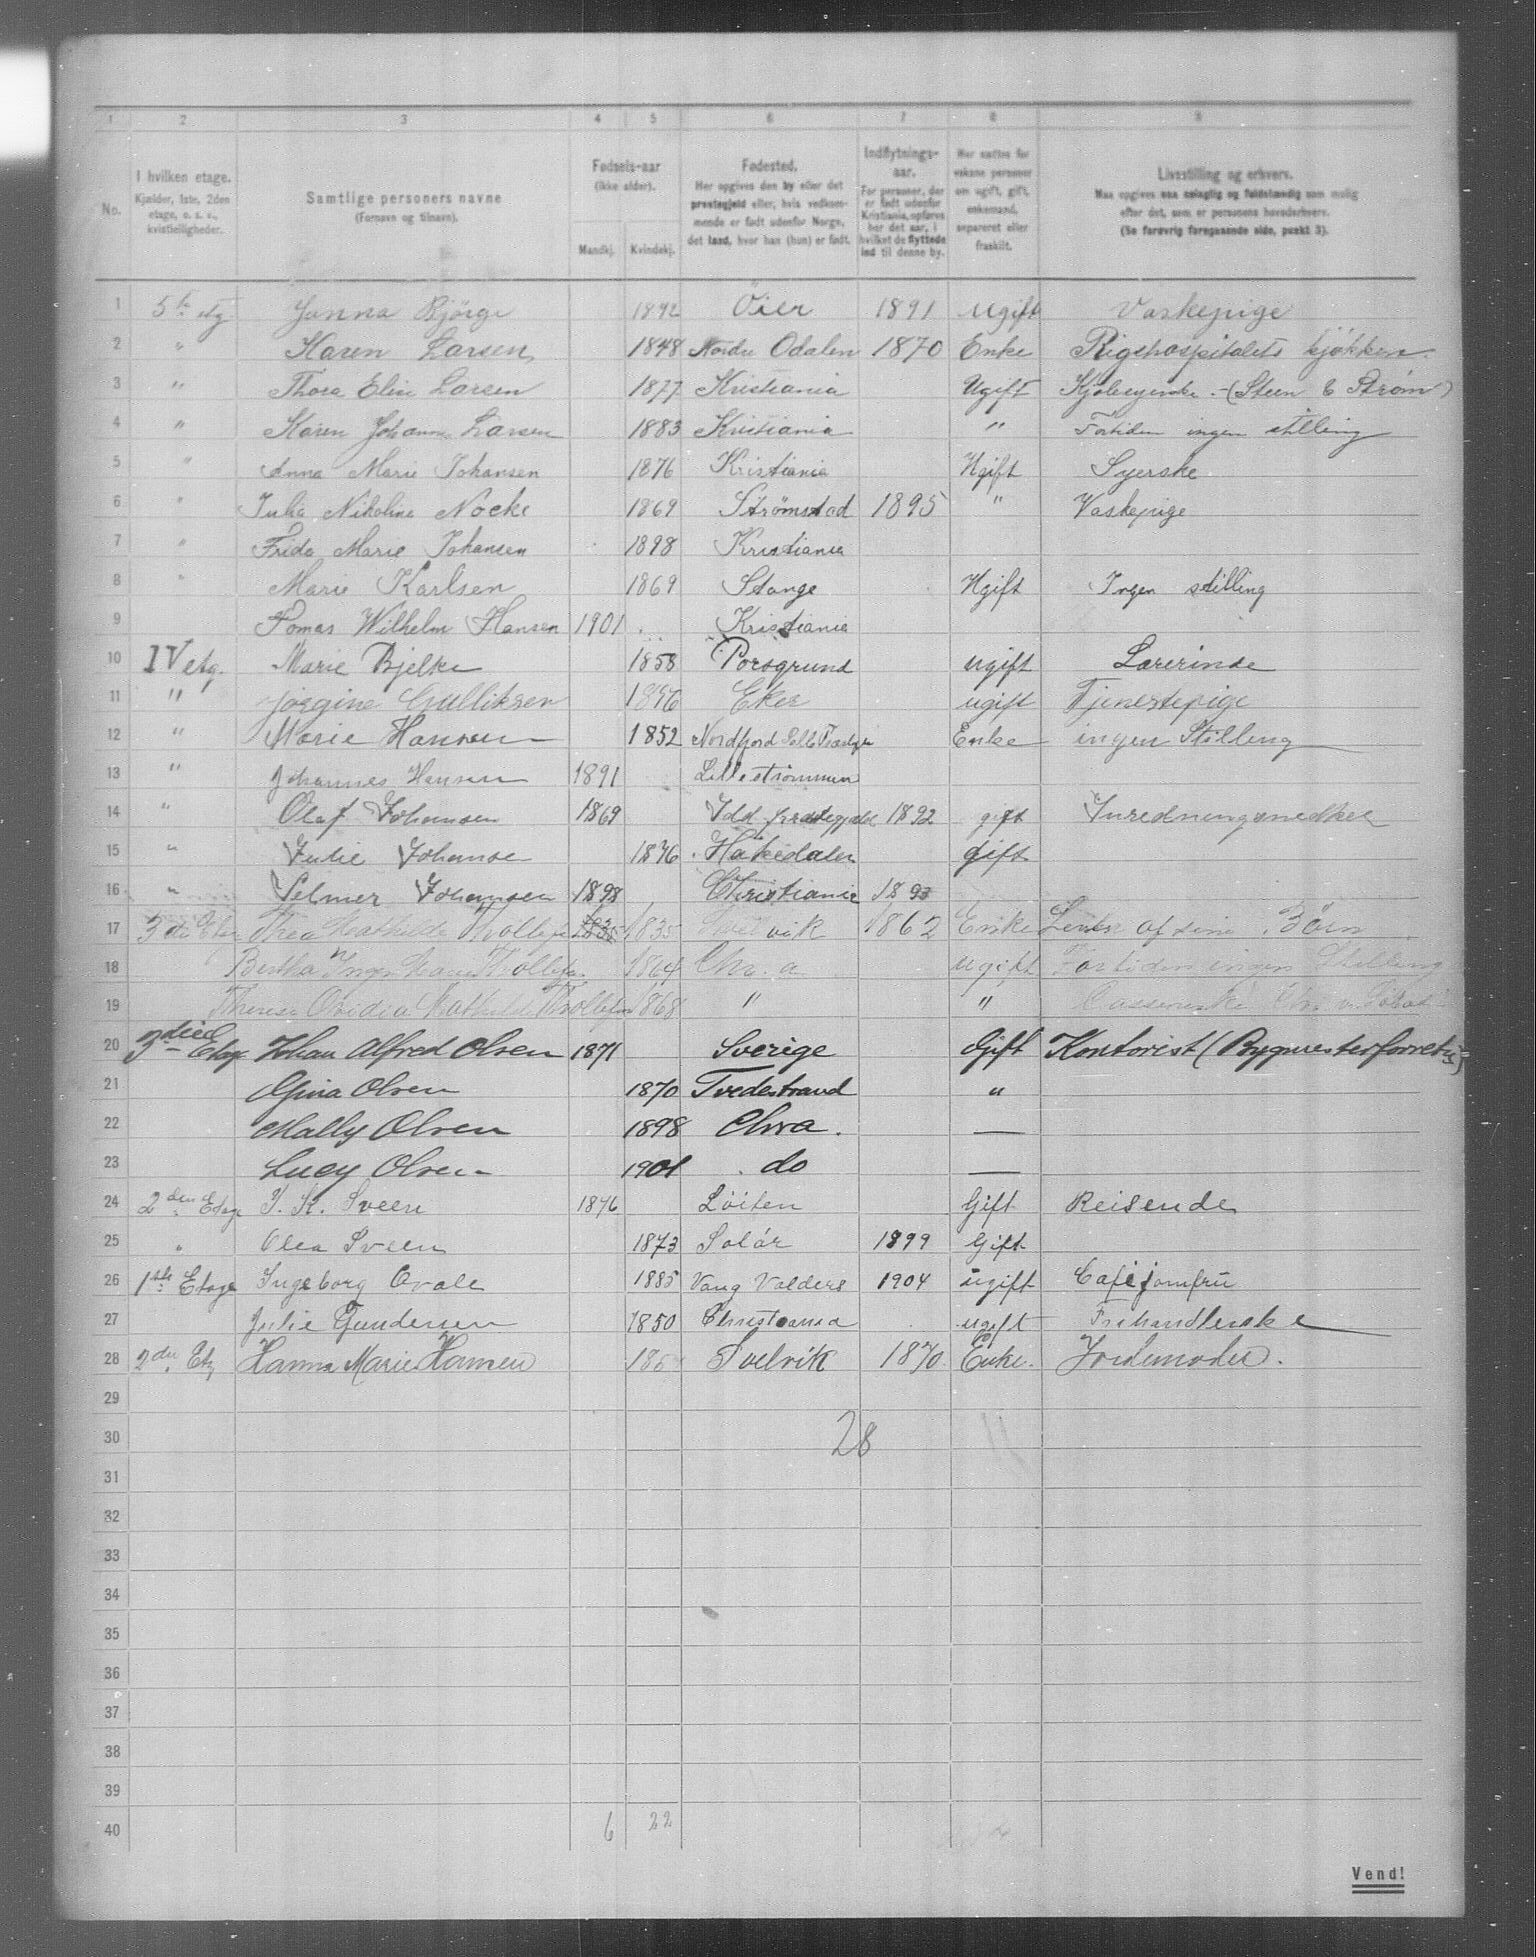 1 2 3 4 5 6 7 8 9
No.
I hvilken etage. Kjælder, 1ste, 2den etage, o. s. v., kvistleiligheder.
Samtlige personers navne (Fornavn og tilnavn).
Fødsels-aar (ikke alder). Mandkj. Kvindekj.
Fødested. Her opgives den by eller det prestegjeld eller, hvis vedkommende er født udenfor Norge, det land, hvor han (hun) er født.
Indflytnings-aar. For personer, der er født udenfor Kristiania, opføres her det aar, i hvilket de flyttede ind til denne by.
Her sættes for voksne personer om ugift, gift, enkemand, separeret eller fraskilt.
Livsstilling og erhverv. Maa opgives saa nøiagtig og fuldstændig som mulig efter det, som er personens hovederhverv. (Se forøvrig foregaaende side, punkt 3).
1 5te etg Janna Bjørge 1892 Öier 1891 Ugift Vaskepige
2 " Karen Larsen 1848 Nordre Odalen 1870 Enke Rigshospitalets kjøkken.
3 " Thora Elin Larsen 1877 Kristiania Ugift (Steen & Strøm)
4 " Karen Johanne Larsen 1883 Kristiania " Fortiden ingen stilling
5 " Anna Marie Johansen 1876 Kristiania Ugift Syerske
6 " Julia Nikoline Nocke 1869 Strømstad 1895 " Vaskepige
7 " Frida Marie Johansen 1898 Kristiania
8 " Marie Karlsen 1869 Stange Ugift Ingen stilling
9 Tomas Wilhelm Hansen 1901 Kristiania
10 IV etg. Marie Bjelke 1858 Porsgrund ugift Lærerinde
11 " Jørgine Gulliksen 1876 Eker ugift Tjenestepige
12 " Marie Hansen 1852 Nordfjord Enke ingen Stilling
13 " Johannes Hansen 1891 Lillestrømmen
14 " Olaf Johansen 1869 Idd prestegjæld 1892 gift Inredningsnedker
15 " Julie Johanse 1876 Hakedalen gift
16 " Selmer Johansen 1898 Christiania 1893
17 3die Etg Thea Mathilde 1835 1835 vik 1862 Enke Lever af sine Börn
18 Bertha Inga 1864 Chr. a ugift Fortiden ingen Stilling
19 Therese Ovidia Mathilde 1868 " "
20 3die Etage Johan Alfred Olsen 1871 Sverige Gift Kontorist (Bygmesterforretn.)
21 Gina Olsen 1870 Tvedestrand "
22 Mally Olsen 1898 Chra. —
23 Lucy Olsen 1901 do —
24 2den Etage J. K. Sveen 1876 Löiten Gift Reisende
25 " Olea Sveen 1873 Solör 1899 Gift
26 1ste Etage Ingeborg Qvale 1885 Vang Valders 1904 ugift Caféjomfru
27 Julie Gundersen 1850 Christiania ugift Frihandlerske
28 2den Etg Hanna Marie Hansen Svelvik 1870 Enke. Jordemoder.
29
30 28
31
32
33
34
35
36
37
38
39
40 6 22
Vend!